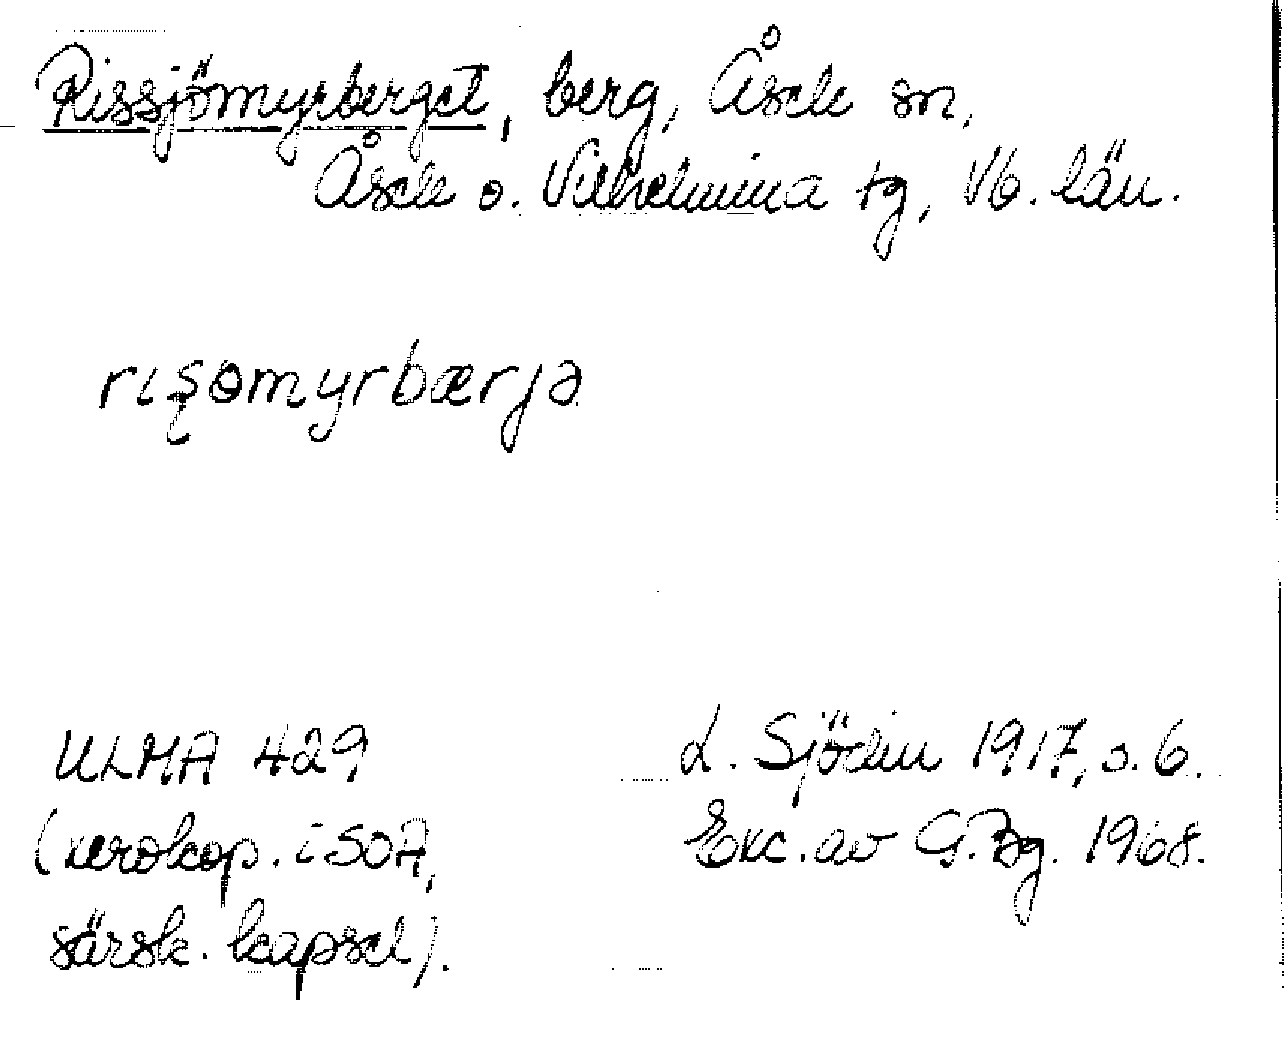 Rissjömyrberget, berg, Åsele sn,
Åsele o. Vilhelmina tg, Vb. län.
rısömyrbærjə
ULMA 429
(xerokop. i SOA,
särsk. kapsel).
L. Sjödin 1917, s. 6.
Exc. av G. Bg. 1968.